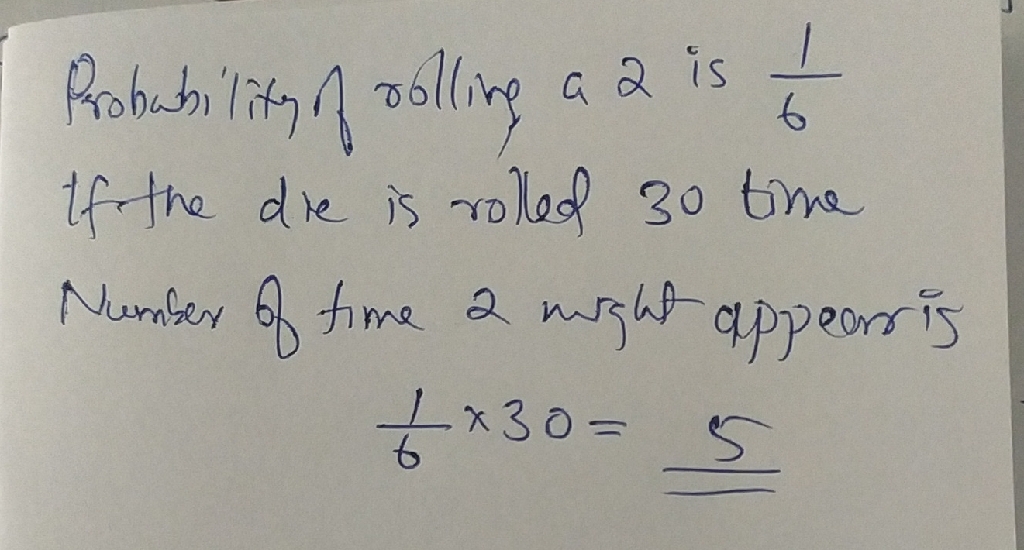 Probability of rolling a 2 is 1/6
If the die is rolled 30 time
Number of time 2 might appear is
1/6 × 30 = 5